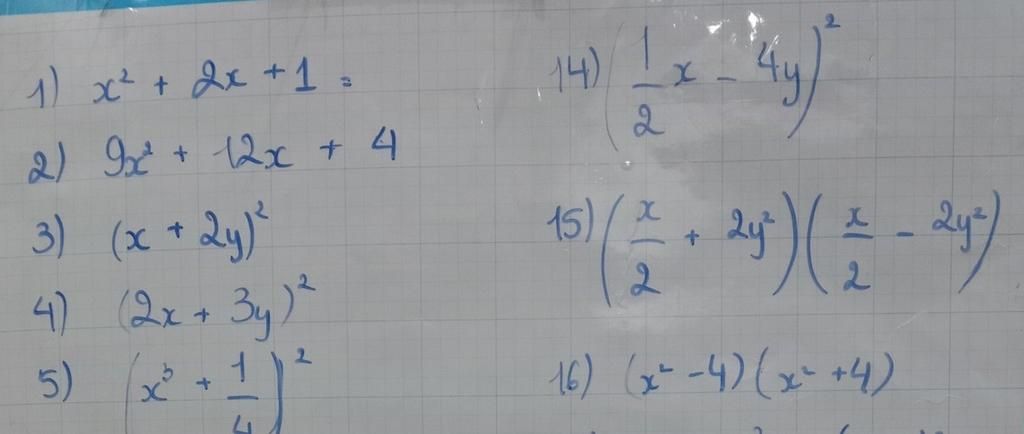 1) x² + 2x + 1 =
2) 9x² + 12x + 4
3) (x + 2y)²
4) (2x + 3y)²
5) (x³ + 1/4)²
14) (1/2 x - 4y)²
15) (x/2 + 2y²)(x/2 - 2y²)
16) (x² - 4)(x² + 4)